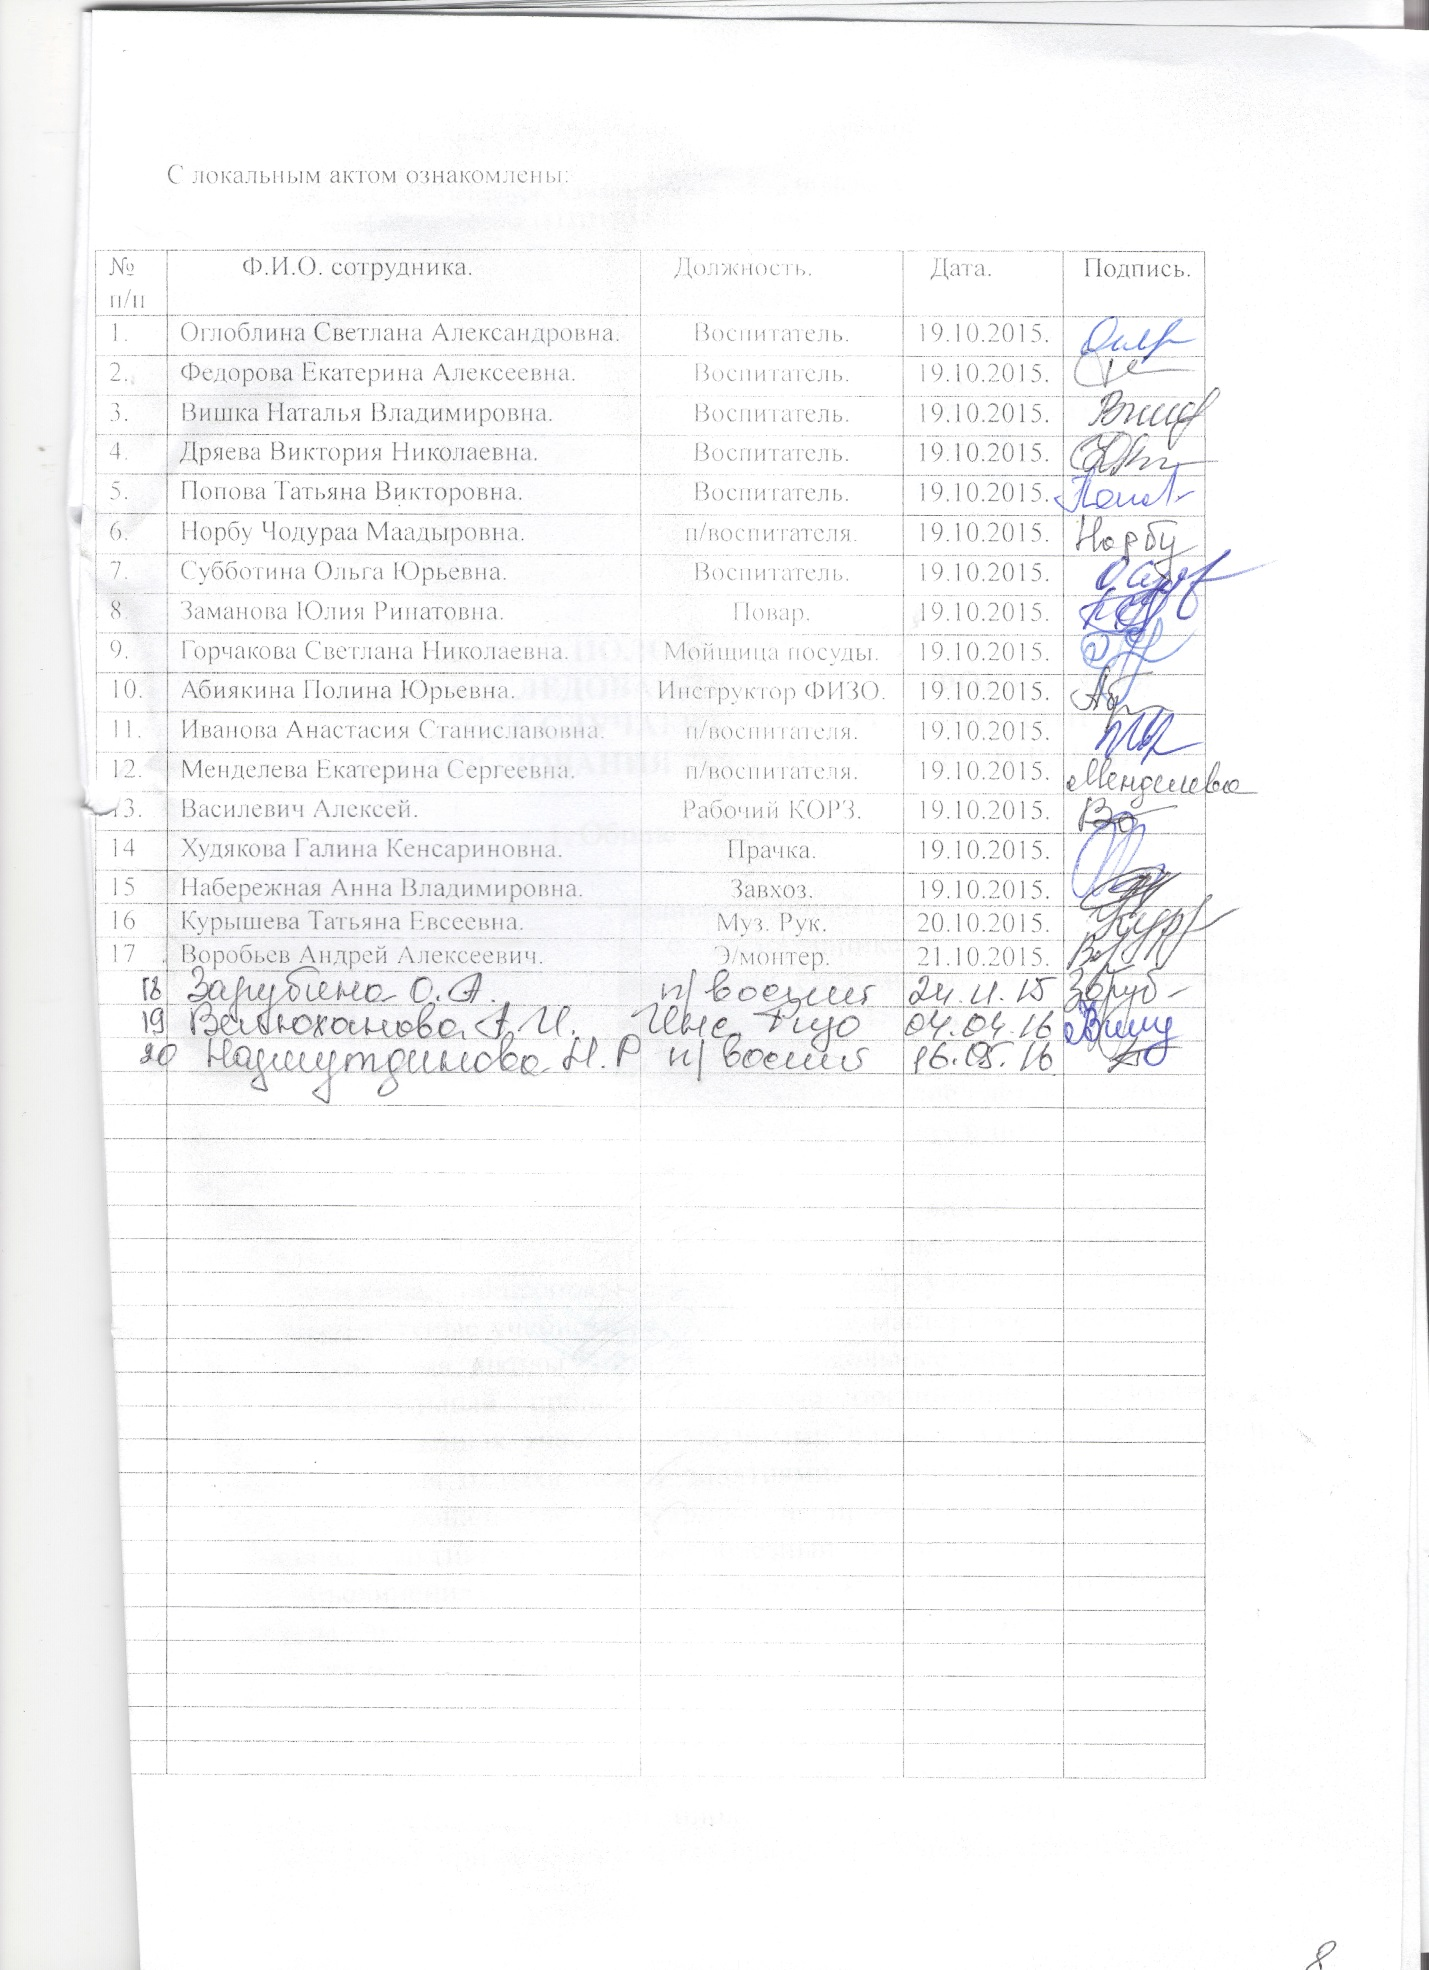 С локальным актом ознакомлены:
№ п/п Ф.И.О. сотрудника. Должность. Дата. Подпись.
1. Оглоблина Светлана Александровна. Воспитатель. 19.10.2015.
2. Федорова Екатерина Алексеевна. Воспитатель. 19.10.2015.
3. Вишка Наталья Владимировна. Воспитатель. 19.10.2015.
4. Дряева Виктория Николаевна. Воспитатель. 19.10.2015.
5. Попова Татьяна Викторовна. Воспитатель. 19.10.2015.
6. Норбу Чодураа Маадыровна. п/воспитателя. 19.10.2015. Норбу
7. Субботина Ольга Юрьевна. Воспитатель. 19.10.2015.
8. Заманова Юлия Ринатовна. Повар. 19.10.2015.
9. Горчакова Светлана Николаевна. Мойщица посуды. 19.10.2015.
10. Абиякина Полина Юрьевна. Инструктор ФИЗО. 19.10.2015.
11. Иванова Анастасия Станиславовна. п/воспитателя. 19.10.2015.
12. Менделева Екатерина Сергеевна. п/воспитателя. 19.10.2015. Менделева
13. Василевич Алексей. Рабочий КОРЗ. 19.10.2015.
14 Худякова Галина Кенсариновна. Прачка. 19.10.2015.
15 Набережная Анна Владимировна. Завхоз. 19.10.2015.
16 Курышева Татьяна Евсеевна. Муз. Рук. 20.10.2015.
17 Воробьев Андрей Алексеевич. Э/монтер. 21.10.2015.
18 Зарубина О.А. п/воспит 24.11.15
19 А.И. Инс. Физо 04.04.16
20 Н.Р п/воспит 16.05.16
8